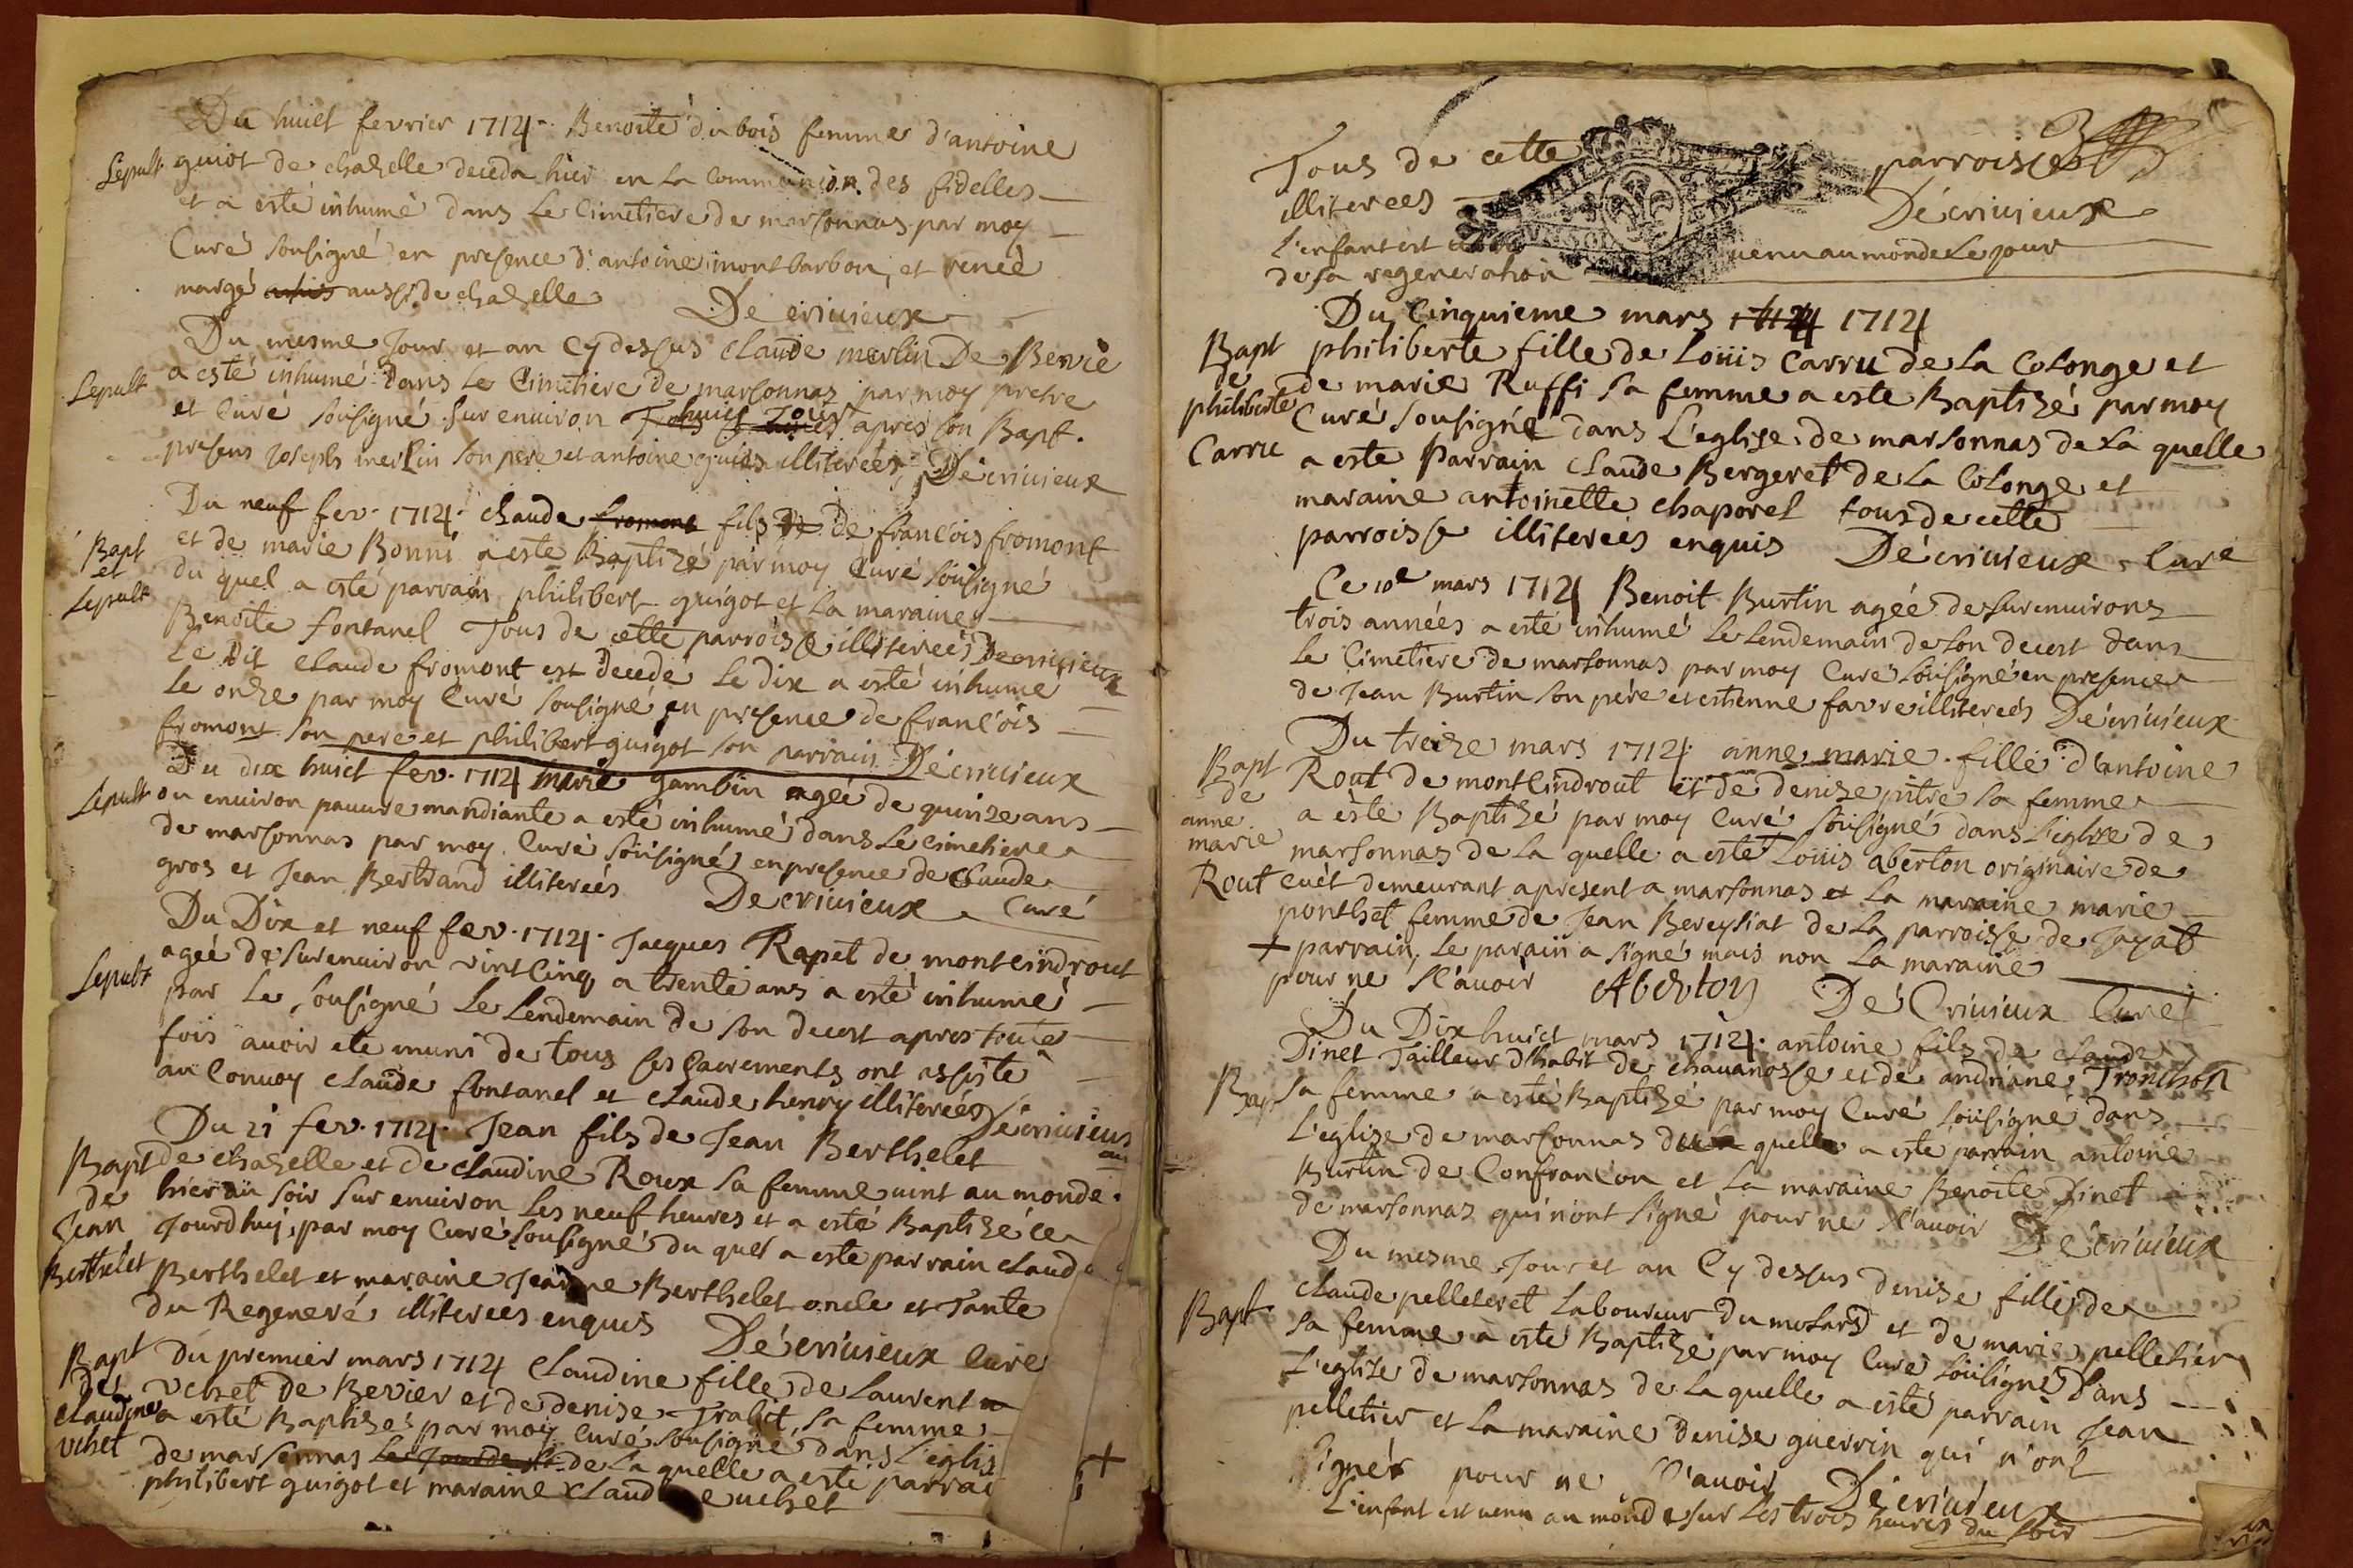 Du huict fevrier 1714. Benoite dubois femme d'antoine
Sepult. guiot de chazelle deceda hier en la communion des fidelles
et a esté inhumé dans le Cimetiere de marsonnas par moy
Curé sousigné en presence d'antoine montbarbon, et renée
margé aussi de chazelle Decriuieux
Du mesme Jour et an Cy dessus Claude merlin De Bevié
Sepult a esté inhumé dans le Cimetiere de marsonnas par moy pretre
et Curé sousigné sur environ huict Jours apres son Bapt.
presens Joseph merlin son pere et antoine guiot illitereés, Décriuieux
Du neuf fev. 1714. Claude fromont fils de De francois fromont
Bapt et Sepult et de marie Bonni a esté Baptizé par moy Curé sousigné
du quel a esté parrain philibert guigot et la maraine
Benoite fontanel Tous de cette parroisse illitereés Decriuieux
Le Dit Claude fromont est Decedé le dix a esté inhumé
le onze par moy Curé sousigné en presence de francois
fromont son pere et philibert guigot son parrain Décriuieux
Du dix huict fev. 1714 marie gambin ageé de quinze ans
Sepult ou environ pauure mandiante a esté inhumé dans le Cimetiere
de marsonnas par moy Curé sousigné en presence de Claude
gros et Jean Bertrand illitereés Decriuieux Curé
Du Dix et neuf fev. 1714. Jacques Rapet de montcindrout
Sepult ageé de surenuiron vint cinq a trente ans a esté inhumé
par le sousigné le lendemain de son decest apres toutes
fois auoir eté muni de tous ses sacrements ont assisté
au Conuoy Claude fontanel et Claude henry illitereés Décriuieux
Du 21 fev. 1714. Jean fils de Jean Berthelet
Bapt de Jean Berthelet de chazelle et de Claudine Roux sa femme uint au monde
hier au soir sur environ les neuf heures et a esté Baptizé ce
Jourdhuy, par moy Curé sousigné du quel a este parrain Claude
Berthelet et maraine Jeanne Berthelet oncle et Tante
du Regeneré illitereés enquis Décriuieux Curé
Bapt de Claudine vchet Du premier mars 1714 Claudine fille de Laurent
vchet de Bevier et de denise Trabit, sa femme
a esté Baptizeé par moy Curé sousigné dans l'eglis
de marsonnas de la quelle a esté parrai
philibert guigot et maraine Claud e uchet
Tous de cette parroisse
illitereés Décriuieux
L'enfant est venu au monde le jour
de sa regeneration
Du Cinquieme mars 1714 1714
Bapt de philiberte Carru philiberte fille de Loüis Carru de la Colonge et
de marie Ruffi sa femme a este Baptizé par moy
Curé sousigné dans L'eglise de marsonnas de la quelle
a este Parrain Claude Bergeret de la Colonge et
maraine antoinette chaporel tous de cette
parroisse illitereés enquis Décriuieux Curé
Ce 10e mars 1714 Benoit Burtin ageé de surenuirons
trois années a esté inhumé le lendemain de son decest dans
le Cimetiere de marsonnas par moy Curé sousigné en presence
de Jean Burtin son pére et estienne favre illitereés Décriuieux
Du treize mars 1714. anne marie fille d'antoine
Bapt de anne marie Rout Rout de montcindrout et de denize pitre sa femme
a èste Baptizé par moy Curé sousigné dans l'eglize de
marsonnas de la quelle a esté Loüis aberton originaire de
cuèt demeurant a present a marsonnas et la maraine marie
ponthet femme de Jean Bereysiat de la parroisse de Jayat
+ parrain, le parain a signé mais non la maraine
pour ne sçauoir Aberton Dé Criuieux Curé
Du Dixhuict mars 1714. antoine fils de Claude
Dinet Tailleur d'habit de chauanosse et de andriane Tronchon
Bap sa femme a esté Baptizé par moy Curé sousigné dans
L'eglize de marsonnas du quel a este parrain antoine
Burtin de Confrançon et la maraine Benoite Dinet
de marsonnas qui n'ont signé pour ne sçauoir Décriuieux
Du mesme Jour et an Cy dessus denise fille de
Bapt Claude pelleteret laboureur du molard et de marie pelletier
sa femme a esté Baptizé par moy Curé sousigné dans
L'eglize de marsonnas de la quelle a esté parrain Jean
pelletier et la maraine Denise guerrin qui n'ont
signér pour ne sç'auoir Décriuieux
L'enfant est uenu au monde sur les trois heures du soir